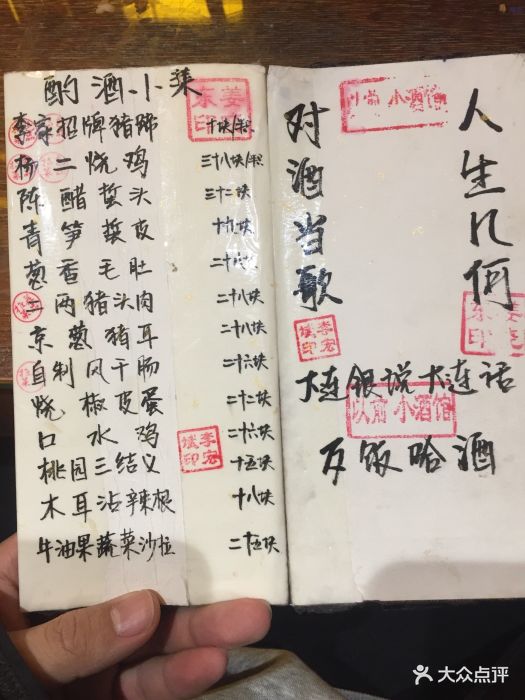 酌酒小菜
李家招牌猪蹄 十块/只
杨二烧鸡 三十八块/只
陈醋蜇头 三十二块
青笋蜇皮 十九块
葱香毛肚 二十八块
二两猪头肉 二十八块
京葱猪耳 二十八块
自制风干肠 二十六块
烧椒皮蛋 二十二块
口水鸡 二十六块
桃园三结义 十五块
木耳沾辣根 十八块
牛油果蔬菜沙拉 二十五块
人生几何
对酒当歌
大连银说大连话
歹饭哈酒
以前 小酒馆
小酒馆
李宏斌印
李宏斌印
大众点评